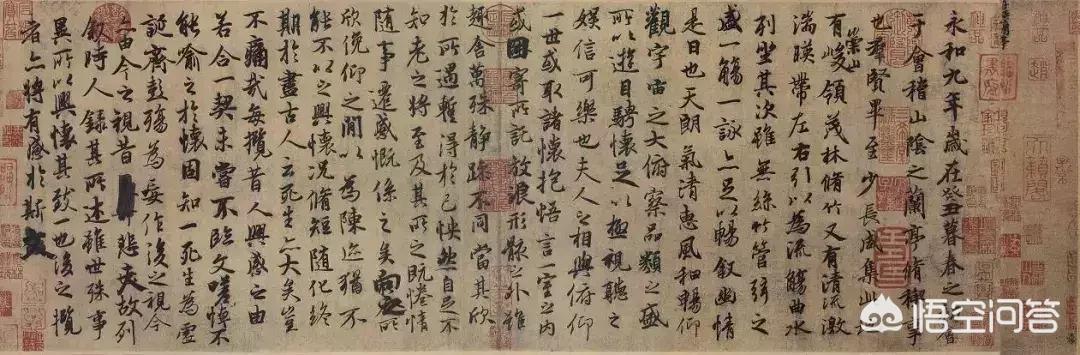 永和九年歲在癸丑暮春之初會
于會稽山陰之蘭亭脩稧事
也羣賢畢至少長咸集此地
有崇山峻領茂林脩竹又有清流激
湍暎帶左右引以為流觴曲水
列坐其次雖無絲竹管弦之
盛一觴一詠亦足以暢敘幽情
是日也天朗氣清惠風和暢仰
觀宇宙之大俯察品類之盛
所以遊目騁懷足以極視聽之
娛信可樂也夫人之相與俯仰
一世或取諸懷抱悟言一室之內
或因寄所託放浪形骸之外雖
趣舍萬殊靜躁不同當其欣
於所遇暫得於己怏然自足不
知老之將至及其所之既惓情
隨事遷感慨係之矣向之所
欣俛仰之閒以為陳迹猶不
能不以之興懷況脩短隨化終
期於盡古人云死生亦大矣豈
不痛哉每攬昔人興感之由
若合一契未嘗不臨文嗟悼不
能喻之於懷固知一死生為虛
誕齊彭殤為妄作後之視今
亦由今之視昔悲夫故列
敘時人錄其所述雖世殊事
異所以興懷其致一也後之攬
者亦將有感於斯文
悟空问答